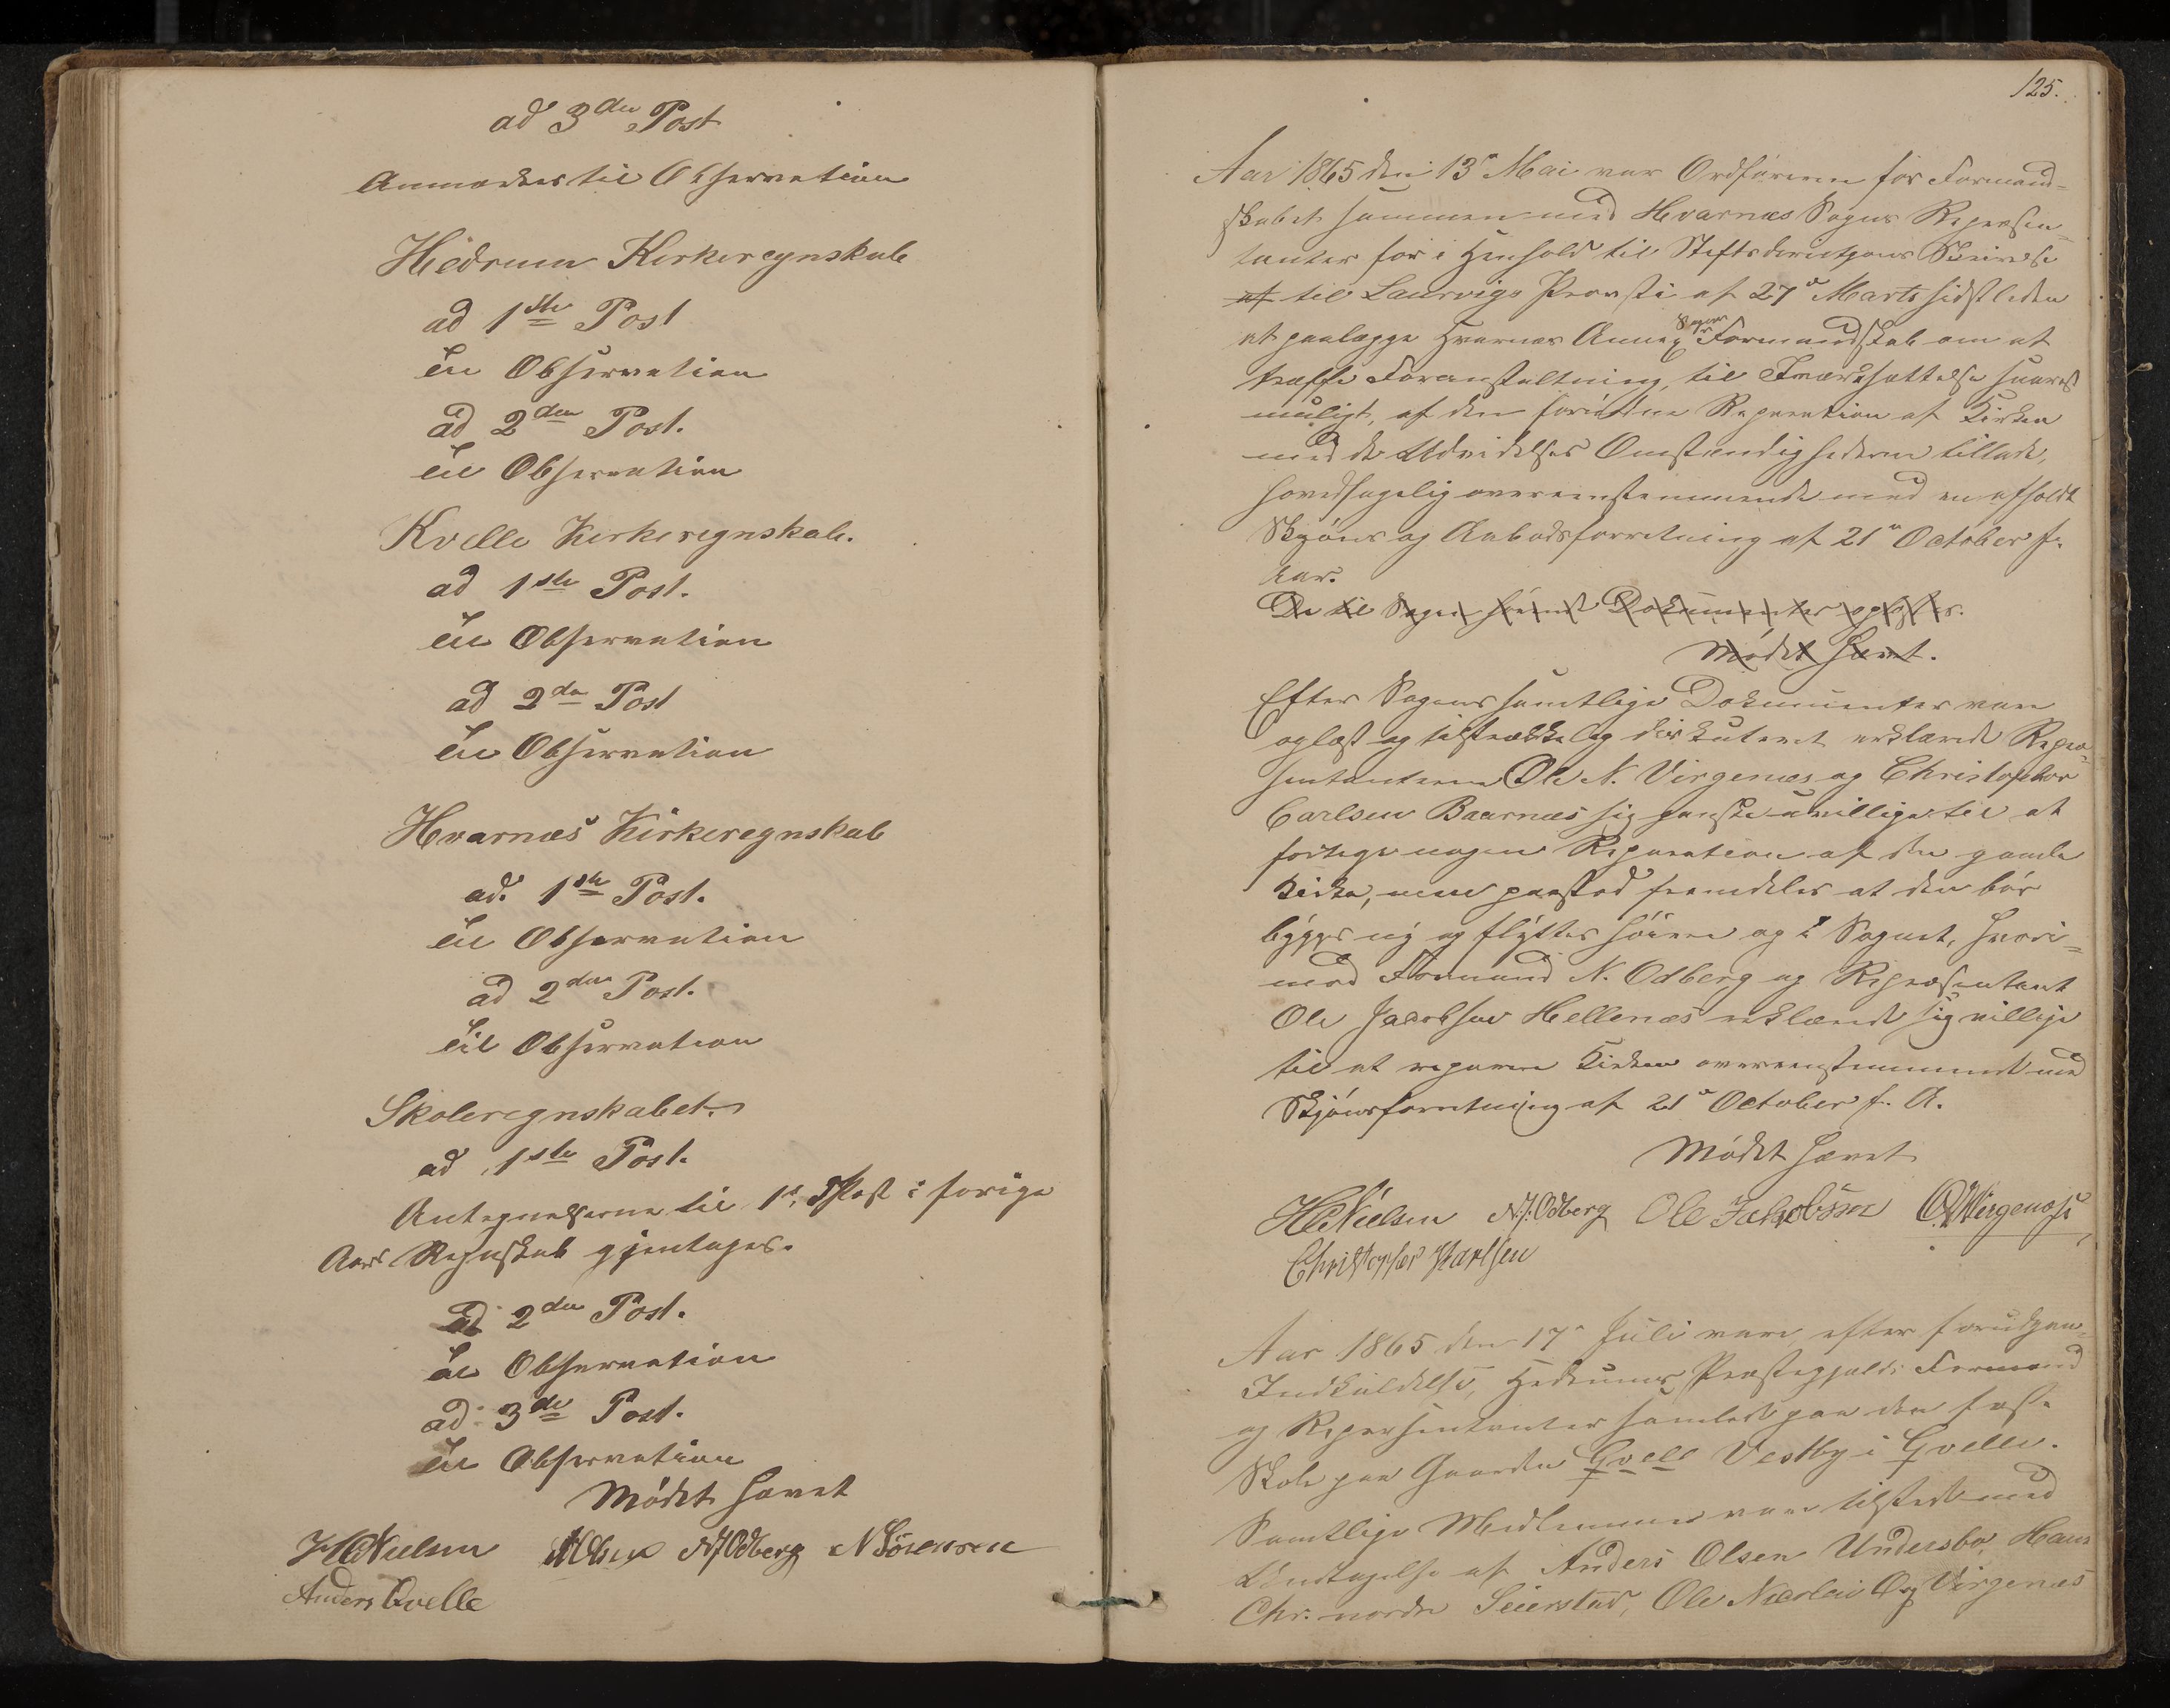 ad 3den Post
Anmærkes til Observation
Hedrum Kirkeregnskab
ad 1ste Post
til Observation
ad 2den Post.
til Observation
Kvelle Kirkeregnskab.
ad 1ste Post.
til Observation
ad 2den Post
til Observation
Hvarnæs Kirkeregnskab
ad. 1ste Post.
til Observation
ad 2den Post.
til Observation
Skoleregnskabet
ad 1ste Post.
Antegnelserne til 1ste Post i forige
Aars Regnskab gjentages.
ad 2den Post.
til Observation
ad 3de Post.
til Observation
Mødet hævet
HCNielsen AOlsen NJOdberg NSörensen
Anders Qvelle
125.
Aar 1865 den 13de Mai var Ordføreren for Formand=
skabet sammen med Hvarnæs Sogns Repræsen=
tanter for i Henhold til Stiftsdirectionens Skrivelse
af til Laurvigs Provsti af 27de Marts sidstleden
at paalægge Hvarnæs Annex Sogns Formandskab om at
træffe Foranstaltning til Iværksættelse snarest
muligt, af den fornødne Reparation af Kirken
med de Udvidelser Omstændighederne tillade,
hovedsagelig overeenstemmende med en afholdt
Skjöns og Aabodsforretning af 21de October f.
Aar.
De til Sagen hørende Dokumenter oplæstes.
Mødet hævet.
Efter Sagens samtlige Dokumenter vare
oplæst og tilstrækkelig diskuteret erklærede Repræ=
sentanterne Ole N. Virgenæs og Christopher
Carlsen Baarnæs sig ganske uvillige til at
foretage nogen Reparation af den gamle
Kirke, men paastod fremdeles at den bör
bygges ny og flyttes höiere op i Sognet, hvori=
mod Formand N. Odberg og Repræsentant
Ole Jacobsen Hellenæs erklærede sig villige
til at reparere Kirken overeenstemmende med
Skjönsforretning af 21de October f. A.
Mødet hævet
HCNielsen NJ.Odberg Ole Jakobsen ONVirgenæs
Christopher Karlsen
Aar 1865 den 17de Juli vare, efter forudgaaende
Indkaldelse, Hedrums Præstegjelds Formænd
og Repræsentanter samlede paa den faste
Skole paa Gaarden Qvelle Vestby i Qvelle.
Samtlige Medlemmer vare tilstede med
Undtagelse af Anders Olsen Undersbo, Hans
Chr. nordre Seierstad, Ole Nicolai Og Virgenæs